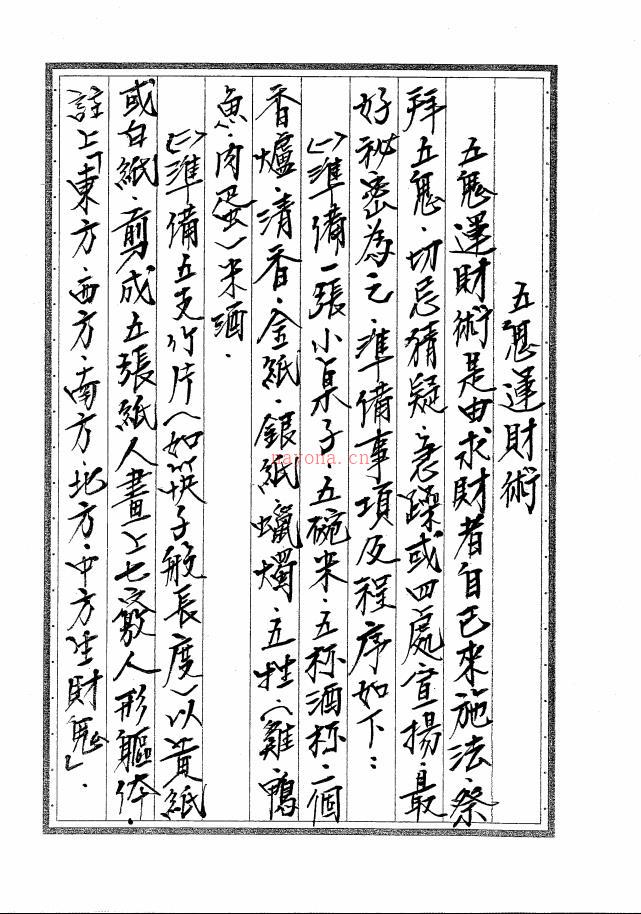 五鬼運財術
五鬼運財術是由求財者自己來施法、祭
拜五鬼、切忌猜疑、急躁或四處宣揚、最
好秘密為之、準備事項及程序如下:
(一)準備一張小桌子、五碗米、五杯酒杯、一個
香爐、清香、金紙、銀紙、蠟燭、五牲(雞、鴨
魚、肉蛋)米酒.
(二)準備五支竹片(如筷子般長度)以黃紙
或白紙、剪成五張紙人畫上七竅人形軀体、
註上「東方、西方、南方、北方、中方生財鬼」.
nayona.cn